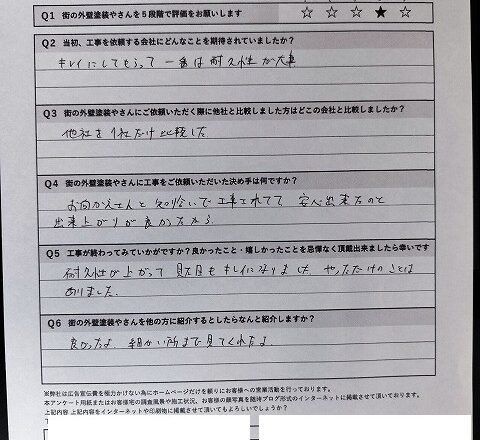 Q1 街の外壁塗装やさんを5段階で評価をお願いします ☆ ☆ ☆ ★ ☆
Q2 当初、工事を依頼する会社にどんなことを期待されていましたか？
キレイにしてもらって 一番は耐久性が大事
Q3 街の外壁塗装やさんにご依頼いただく際に他社と比較しました方はどこの会社と比較しましたか？
他社を1社だけ比較した
Q4 街の外壁塗装やさんに工事をご依頼いただいた決め手は何ですか？
お向かえさんと知り合いで工事されてて 安心出来たのと
出来上がりが良かったから
Q5 工事が終わってみていかがですか？良かったこと・嬉しかったことを忌憚なく頂戴出来ましたら幸いです
耐久性が上がって 見た目もキレイになりました やっただけのことは
ありました。
Q6 街の外壁塗装やさんを他の方に紹介するとしたらなんと紹介しますか？
良かったよ 細かい所まで見てくれたよ
※弊社は広告宣伝費を極力かけない為にホームページだけを頼りにお客様への営業活動を行っております。
本アンケート用紙またはお客様宅の調査風景や施工状況、お客様の顔写真を随時ブログ形式のインターネットに掲載させて頂いております。
上記内容 上記内容をインターネットや印刷物に掲載させて頂いてもよろしいでしょうか？